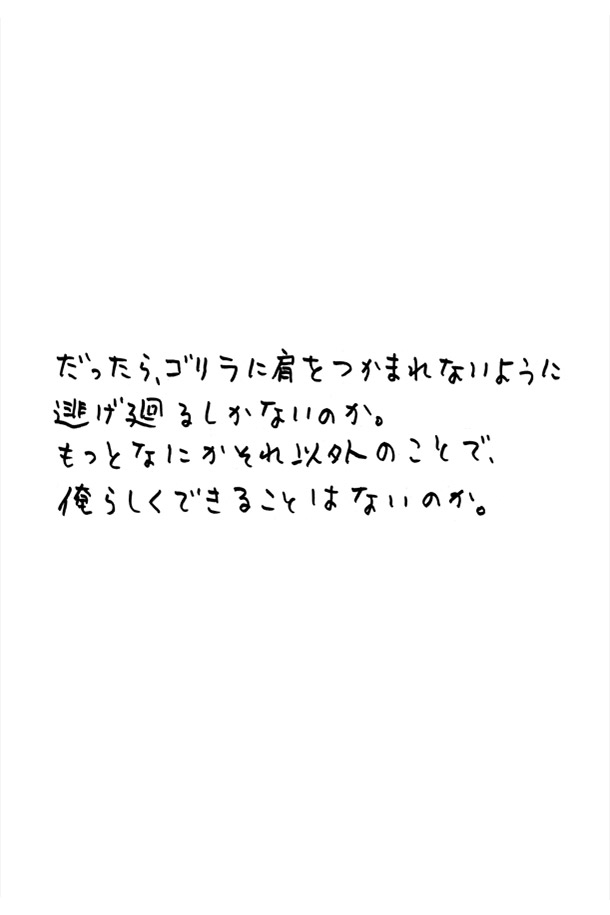 だったら、ゴリラに肩をつかまれないように
逃げ廻るしかないのか。
もっとなにかそれ以外のことで、
俺らしくできることはないのか。